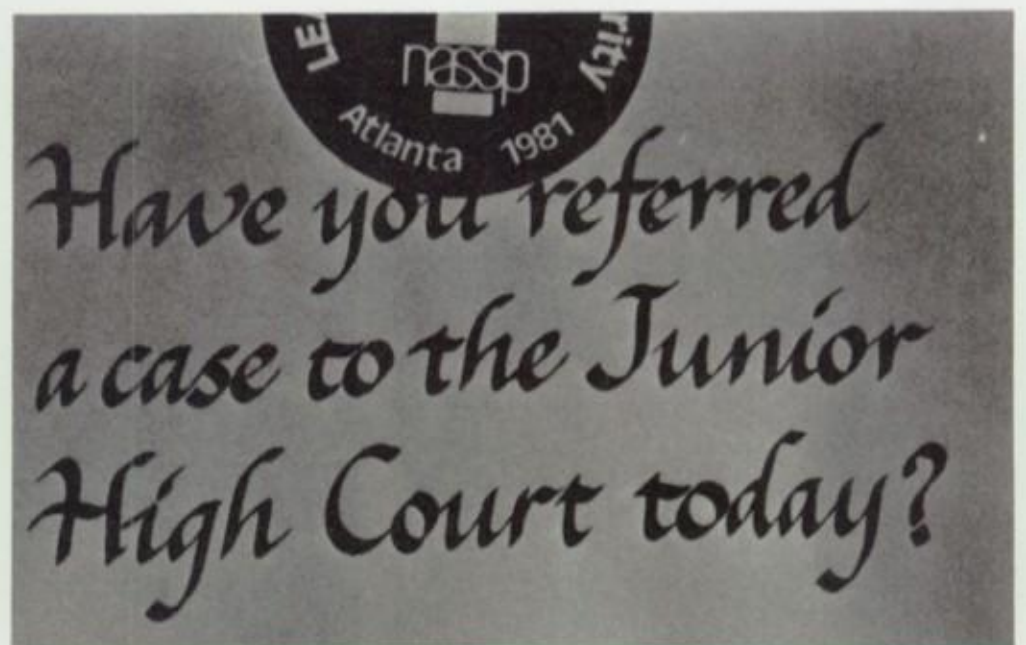 nassp
Atlanta 1981
Have you referred
a case to the Junior
High Court today?